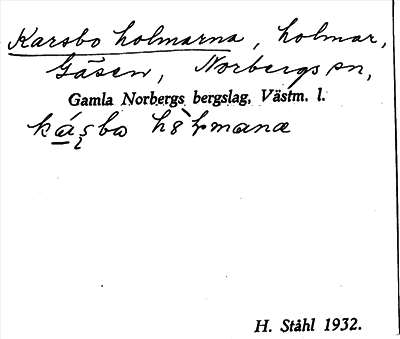 Karsbo holmarna, holmar,
Gäsen, Norbergs sn,
Gamla Norbergs bergslag, Västm. l.
H. Ståhl 1932.